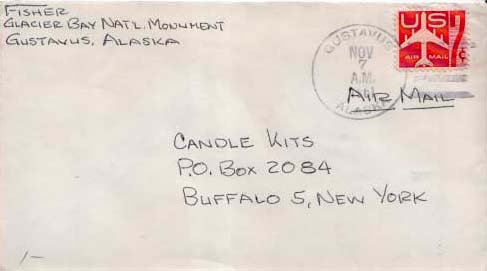 FISHER
GLACIER BAY NAT'L. MONUMENT
GUSTAVUS, ALASKA
GUSTAVUS
NOV
7
A.M.
ALASKA
U.S.
AIR MAIL
AIR MAIL
CANDLE KITS
P.O. BOX 2084
BUFFALO 5, NEW YORK
1-